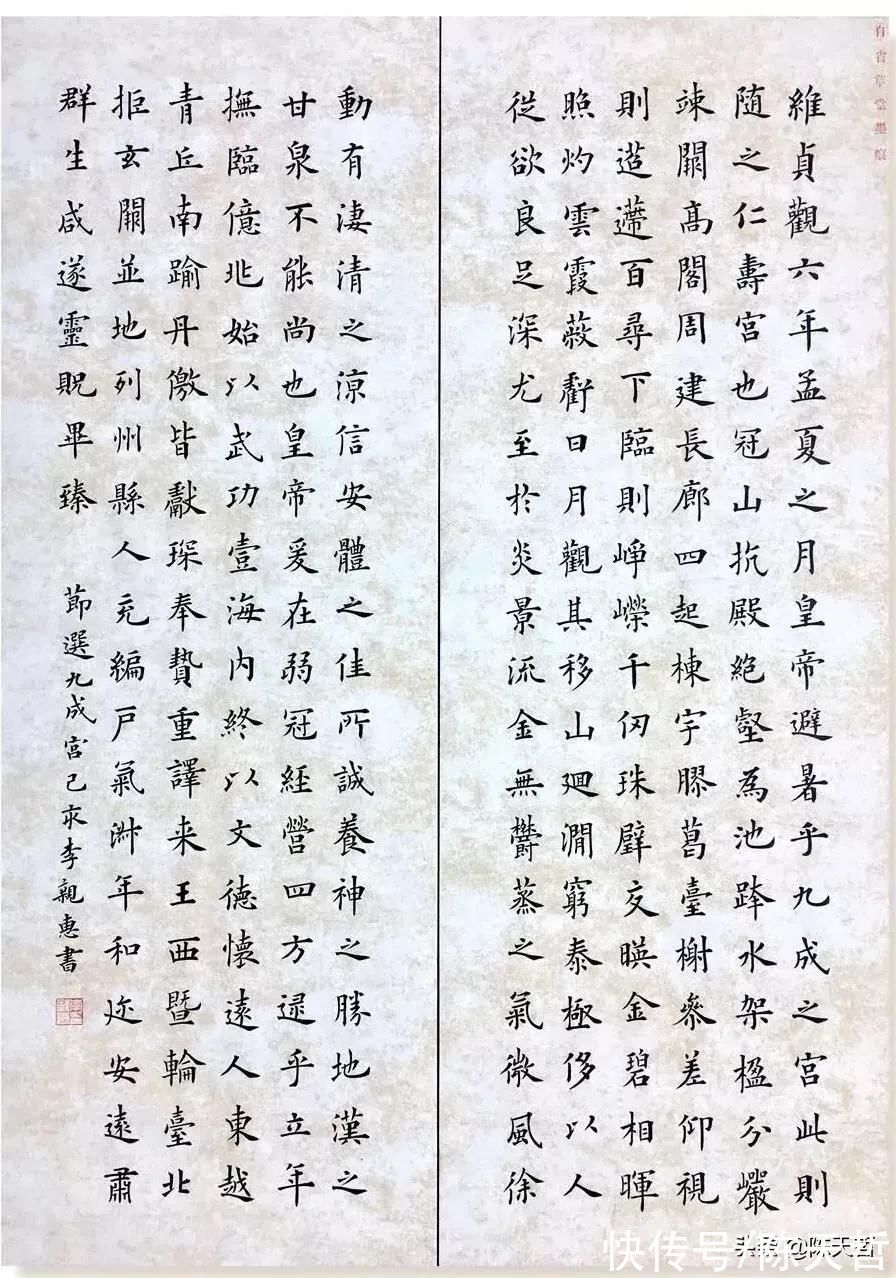 自省草堂墨痕
維貞觀六年孟夏之月皇帝避暑乎九成之宮此則
随之仁壽宮也冠山抗殿絕壑為池跨水架楹分巖
竦闕高閣周建長廊四起棟宇膠葛臺榭參差仰視
則迢遰百尋下臨則崢嶸千仞珠璧交暎金碧相暉
照灼雲霞蔽虧日月觀其移山廻澗窮泰極侈以人
從欲良足深尤至於炎景流金無欝蒸之氣微風徐
動有淒清之涼信安體之佳所誠養神之勝地漢之
甘泉不能尚也皇帝爰在弱冠經營四方逮乎立年
撫臨億兆始以武功壹海內終以文德懷遠人東越
青丘南踰丹儌皆獻琛奉贄重譯来王西暨輪臺北
拒玄闕並地列州縣人充編戶氣淑年和迩安遠肅
群生咸遂靈貺畢臻
節選九成宮己亥李親惠書
快传号/陈天哲
头条 @陈天哲